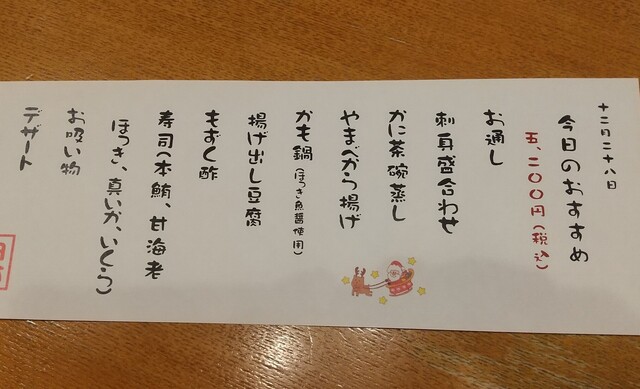 十二月二十八日
今日のおすすめ
五、二〇〇円(税込)
お通し
刺身盛合わせ
かに茶碗蒸し
やまべから揚げ
かも鍋(ほっき魚醤使用)
揚げ出し豆腐
もずく酢
寿司(本鮪、甘海老
ほっき、真いか、いくら)
お吸い物
デザート